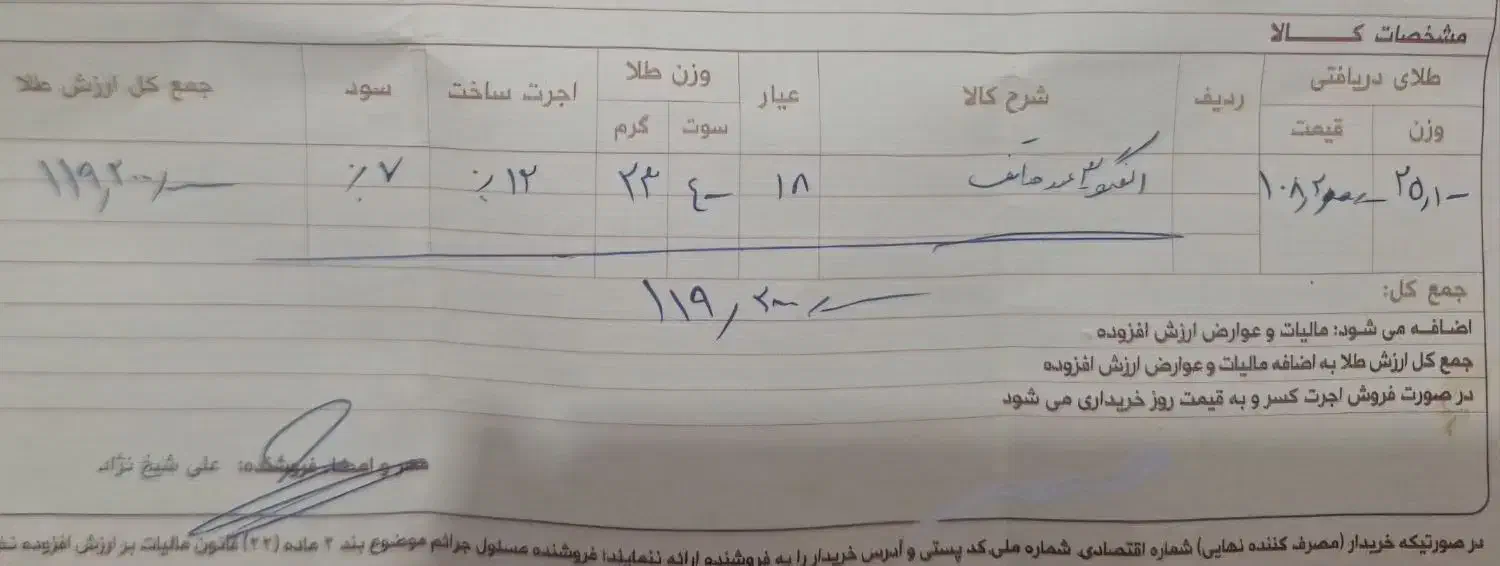 مشخصات کـــــالا
طلای دریافتی ردیف شرح کالا عیار وزن طلا اجرت ساخت سود جمع کل ارزش طلا
وزن قیمت سوت گرم
۲۵,۱۰۰ ۱۰۸,۲۰۰,۰۰۰ ۳ عدد ۱۸ ۴۰۰ ۲۳ ۱۲٪ ۷٪ ۱۱۹,۲۰۰,۰۰۰
جمع کل: ۱۱۹,۲۰۰,۰۰۰
اضافه می شود: مالیات و عوارض ارزش افزوده
جمع کل ارزش طلا به اضافه مالیات و عوارض ارزش افزوده
در صورت فروش اجرت کسر و به قیمت روز خریداری می شود
مهر و امضاء فروشنده: علی شیخ نژاد
در صورتیکه خریدار (مصرف کننده نهایی) شماره اقتصادی، شماره ملی، کد پستی و آدرس خریدار را به فروشنده ارائه ننمایند؛ فروشنده مسئول جرائم موضوع بند ۲ ماده (۲۲) قانون مالیات بر ارزش افزوده